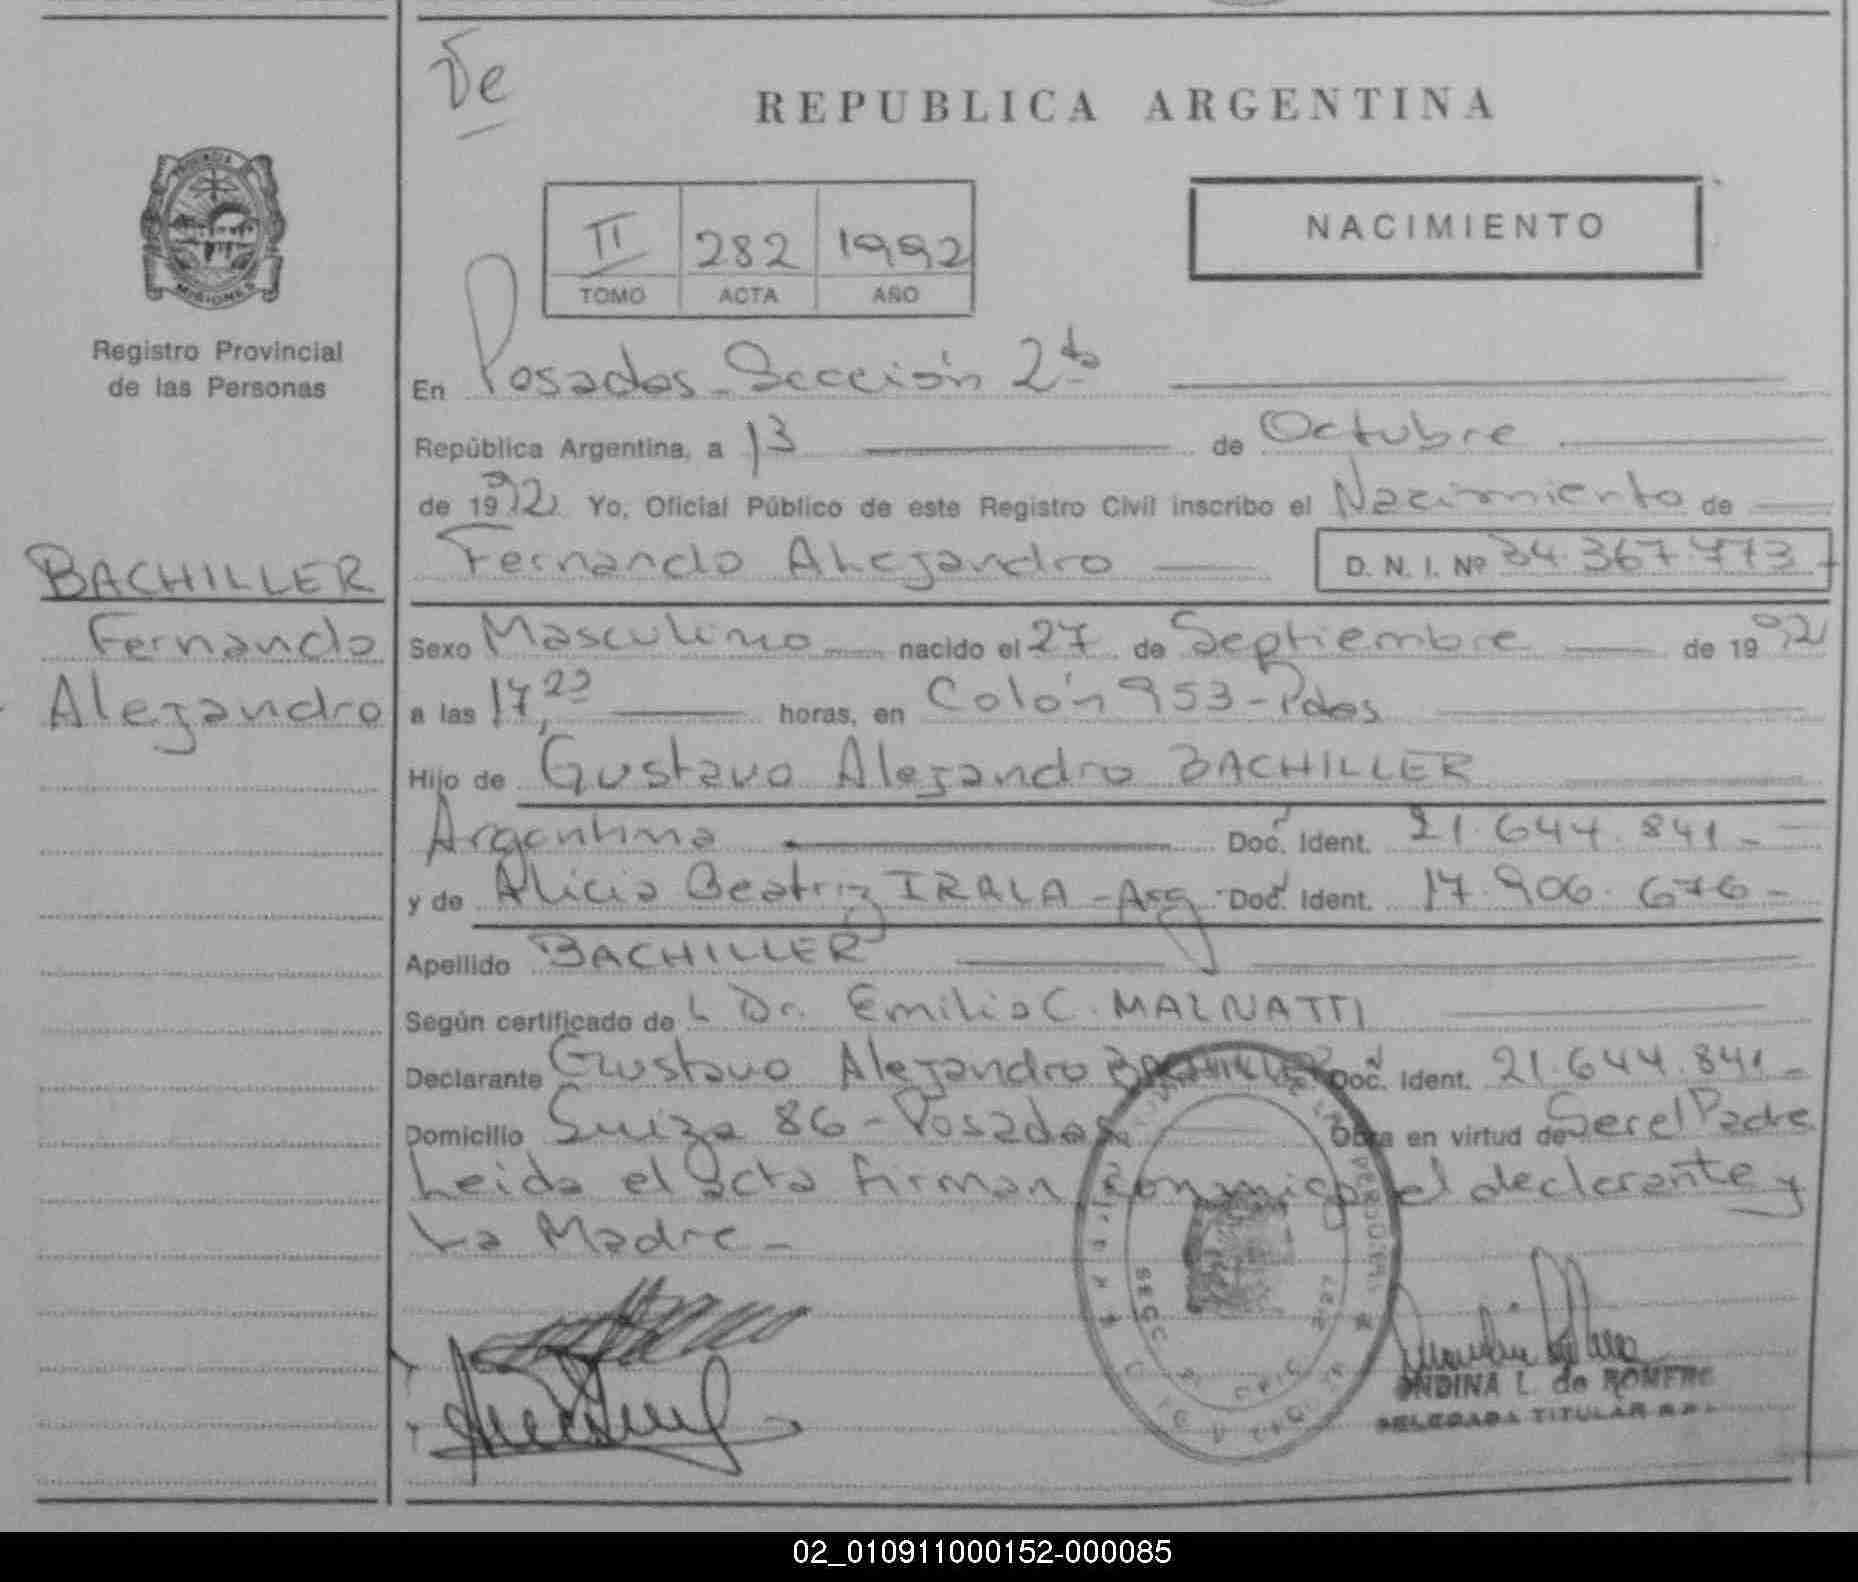 De
REPUBLICA ARGENTINA
PROVINCIA
MISIONES
II 282 1992
TOMO ACTA AÑO
NACIMIENTO
Registro Provincial
de las Personas
En Posadas - Sección 2da
República Argentina, a 13 de Octubre
de 1992 Yo, Oficial Público de este Registro Civil inscribo el Nacimiento de
Fernando Alejandro D. N. I. Nº 34.367.773
BACHILLER
Fernando
Alejandro
Sexo Masculino nacido el 27 de Septiembre de 1992
a las 17, horas, en Colón 953 - Pdas
Hijo de Gustavo Alejandro BACHILLER
Argentina Doc. Ident. 21.644.841-
y de Alicia Beatriz IRALA - Arg Doc. Ident. 17.906.676-
Apellido BACHILLER
Según certificado de L Dr. Emilio C. MALNATTI
Declarante Gustavo Alejandro BACHILLER Doc. Ident. 21.644.841-
Domicilio Suiza 86 - Posadas Obra en virtud de Ser el Padre
Leida el acta firman conmigo el declarante y
La Madre -
ONDINA L. de ROMERO
DELEGADA TITULAR R.P.
02_010911000152-000085